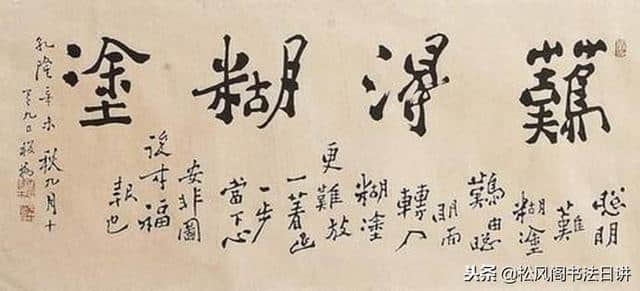 難得糊塗
聰明
難
糊塗
難由聰
明而
轉入
糊塗
更難放
一著退
一步
當下心
安非圖
後来福
報也
乾隆辛未秋九月十
九日板橋
头条 @松风阁书法日讲